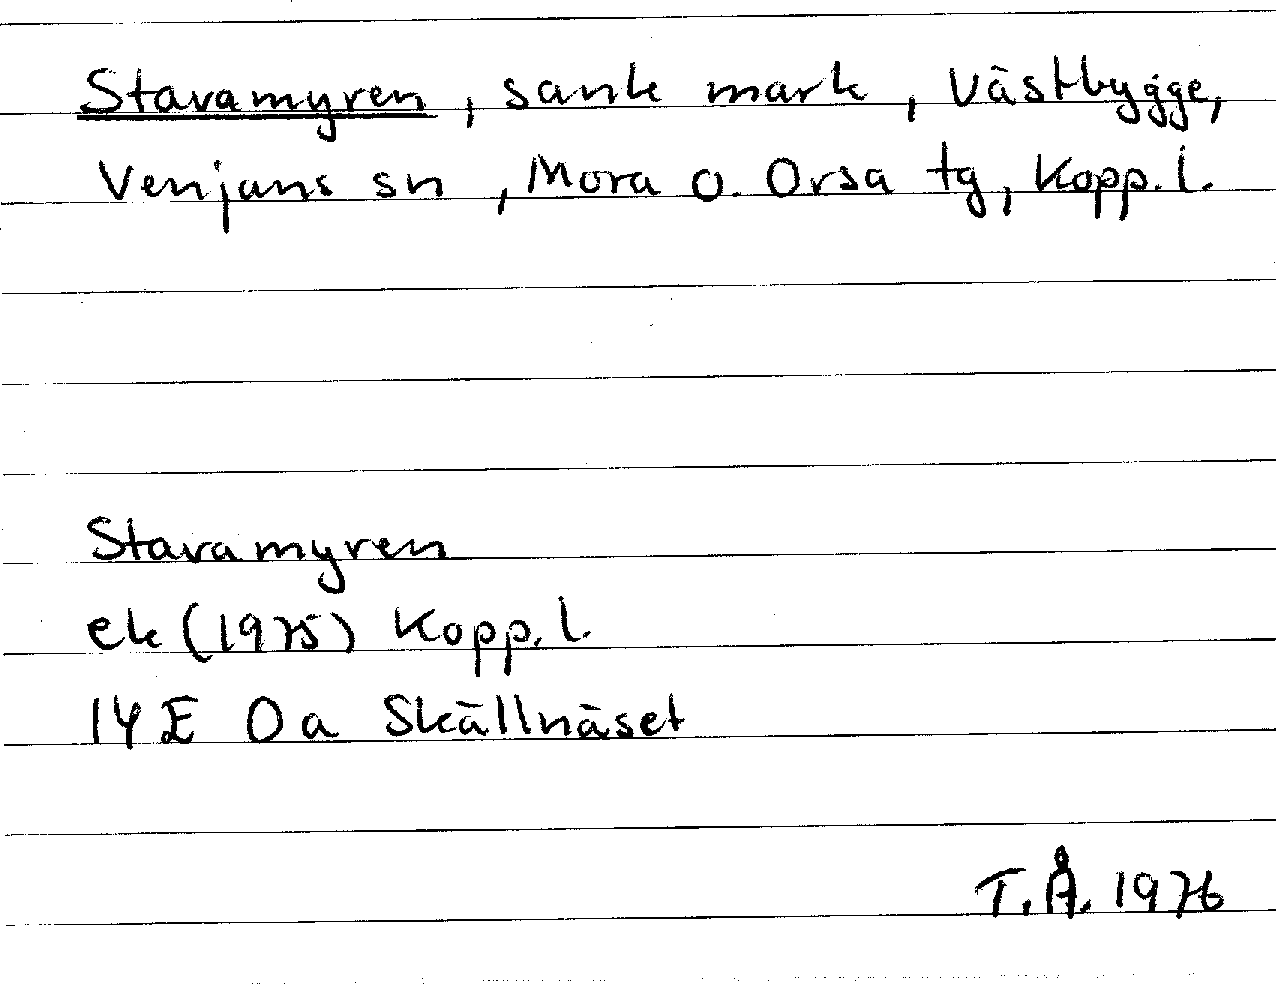 Stavamyren, sank mark, Västbygge,
Venjans sn, Mora o. Orsa tg, Kopp. l.
Stavamyren
ek (1975) Kopp. l.
14E 0a Skällnäset
T.Å. 1976